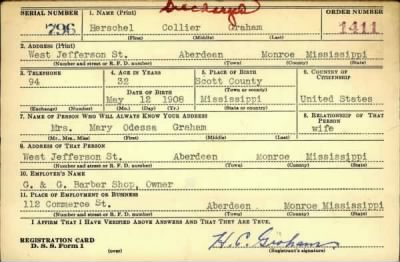 Discharged
SERIAL NUMBER 1. NAME (Print) ORDER NUMBER
796 Herschel Collier Graham 1411
(First) (Middle) (Last)
2. ADDRESS (Print)
West Jefferson St. Aberdeen Monroe Mississippi
(Number and street or R. F. D. number) (Town) (County) (State)
3. TELEPHONE 4. AGE IN YEARS 5. PLACE OF BIRTH 6. COUNTRY OF CITIZENSHIP
94 32 Scott County
DATE OF BIRTH (Town or county)
May 12 1908 Mississippi United States
(Exchange) (Number) (Mo.) (Day) (Yr.) (State or country)
7. NAME OF PERSON WHO WILL ALWAYS KNOW YOUR ADDRESS 8. RELATIONSHIP OF THAT PERSON
Mrs. Mary Odessa Graham wife
(Mr., Mrs., Miss) (First) (Middle) (Last)
9. ADDRESS OF THAT PERSON
West Jefferson St. Aberdeen Monroe Mississippi
(Number and street or R. F. D. number) (Town) (County) (State)
10. EMPLOYER'S NAME
G. & G. Barber Shop, Owner
11. PLACE OF EMPLOYMENT OR BUSINESS
112 Commerce St. Aberdeen Monroe Mississippi
(Number and street or R. F. D. number) (Town) (County) (State)
I AFFIRM THAT I HAVE VERIFIED ABOVE ANSWERS AND THAT THEY ARE TRUE.
REGISTRATION CARD
D. S. S. Form 1 (over) H. C. Graham
(Registrant's signature)